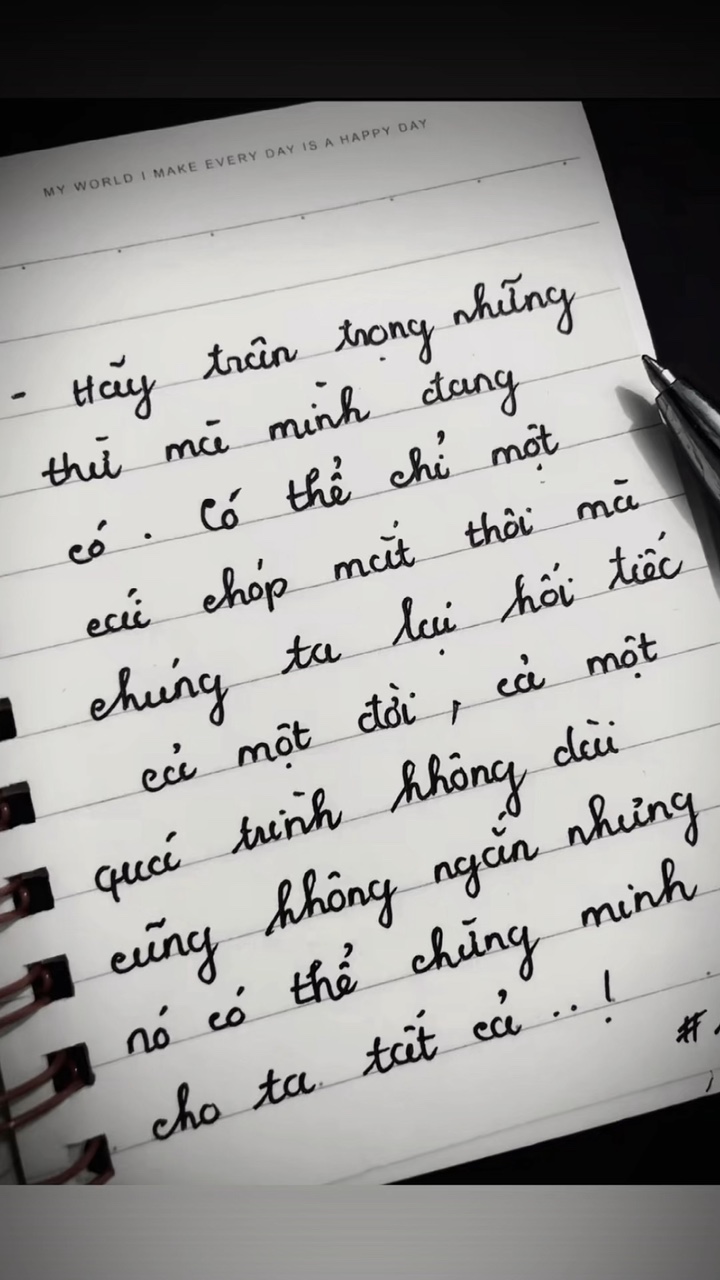 MY WORLD I MAKE EVERY DAY IS A HAPPY DAY
- Hãy trân trọng những
thứ mà mình đang
có. Có thể chỉ một
cái chớp mắt thôi mà
chúng ta lại hối tiếc
cả một đời, cả một
quá trình không dài
cũng không ngắn nhưng
nó có thể chứng minh
cho ta tất cả..!
#